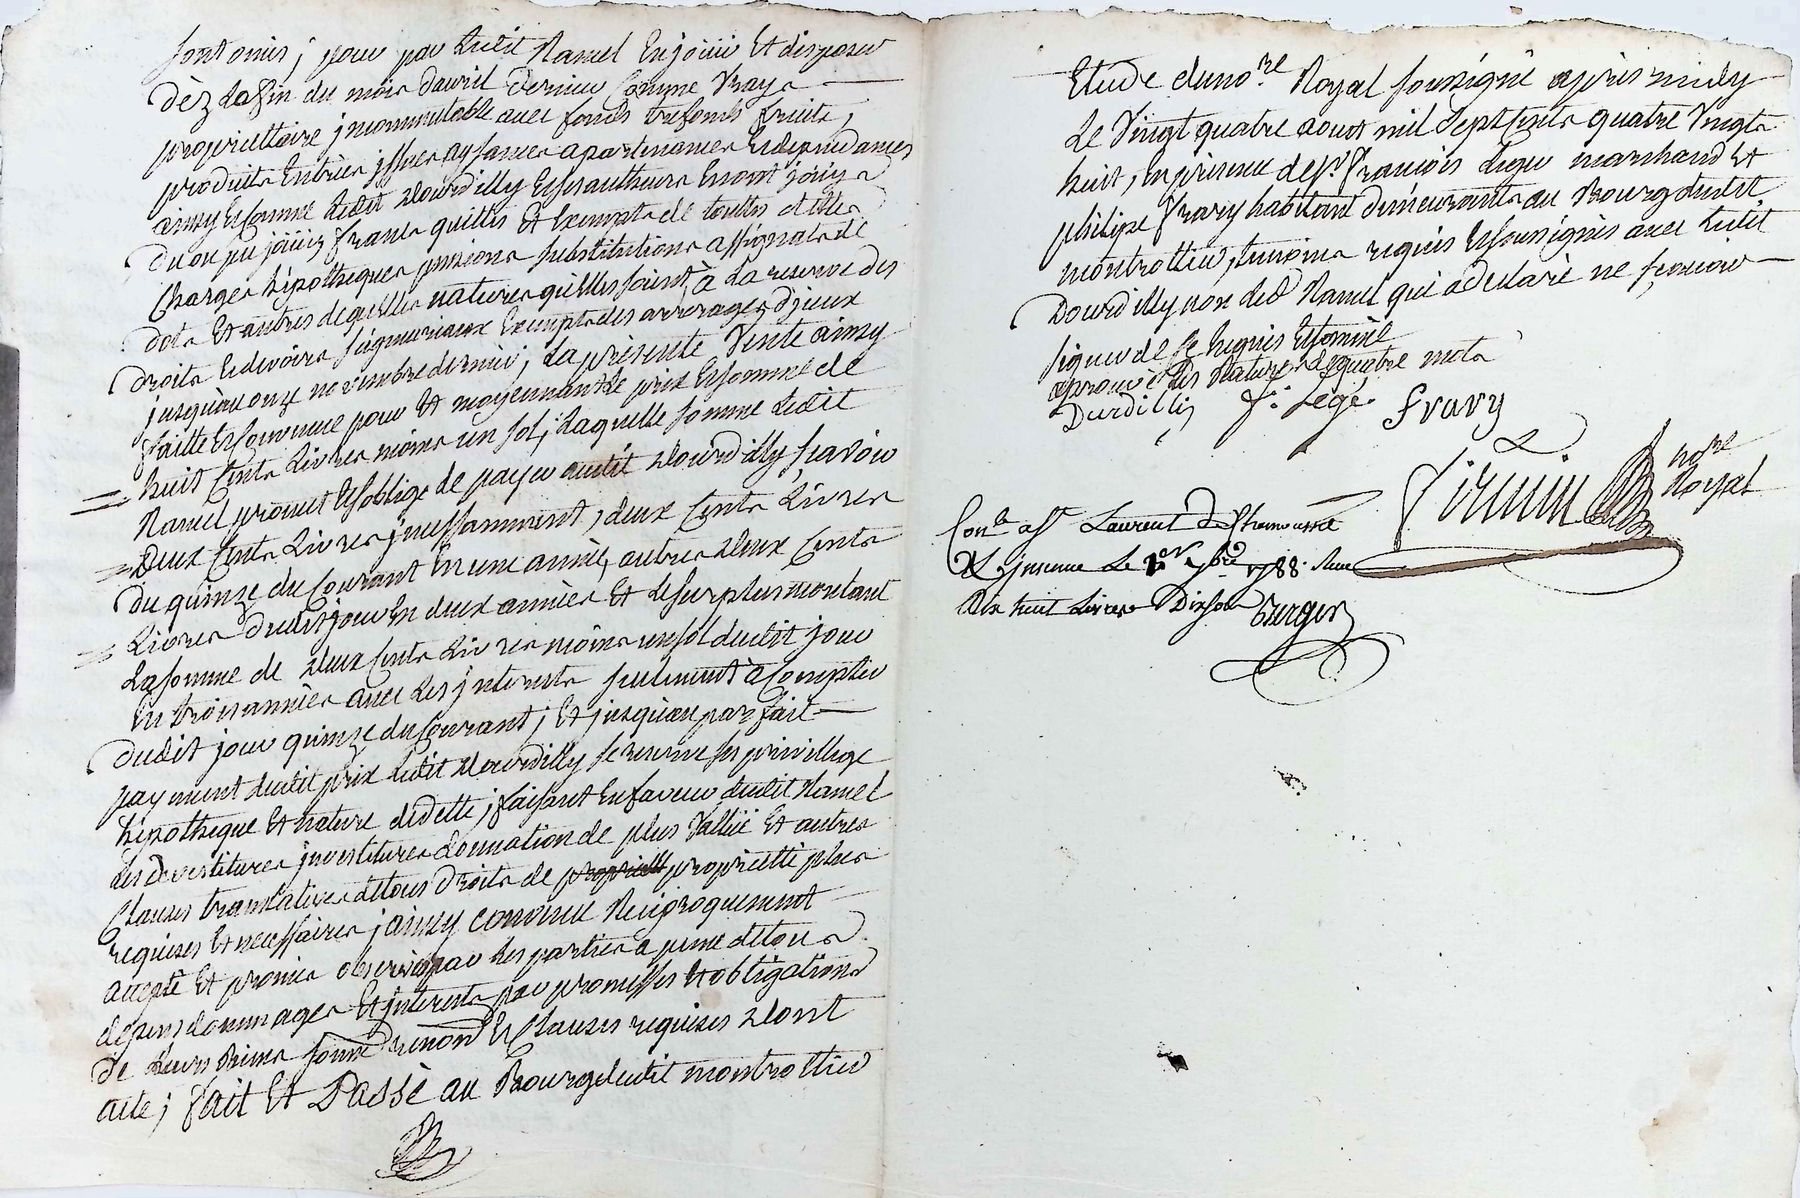 sont omis; pour par ledit Namel en jouir et disposer
dèz la fin du mois davril dernier comme vray
propriettaire jncommutable avec fonds trefonds fruits,
produits entrées jssues aysances apartenances et dependances
ainsy et comme ledit Dourdilly et ses autheurs en ont joüy
du ou pu joüir, francs quittes et exempts de touttes dettes
charges hipotheques pensions substitutions assignats de
dots et autres de quelles natures quelles soient, à la reserve des
droits et devoirs seigneuriaux exempts des arrerages d'jceux
jusquau onze novembre dernier; la présente vente ainsy
faitte et convenue pour et moyennant le prix et somme de
huit cents livres moins un sol, laquelle somme ledit
Namel promet et soblige de payer audit Dourdilly scavoir
deux cents livres jncessamment, deux cents livres
du quinze du courant en une année, autres deux cents
livres dudit jour en deux années et le surplus montant
la somme de deux cents livres moins un sol dudit jour
en trois années avec les jnterests seulement à compter
dudit jour quinze du courant; et jusquau parfait
payement dudit prix ledit Dourdilly se reserve ses privillege
hipotheque et nature de dette; faisant en faveur dudit Namel
les devestitures jnvestitures donnation de plus vallüe et autres
clauses translatives de tous droits de propriette plus
requises et necessaires; ainsy convenu reciproquement
accepté et promis observer par les parties a peine de tous
depens dommages et jnterests par promesses et obligations
de leurs biens soum renon et clauses requises dont
acte; fait et Passé au Bourg dudit montrottier
Etude du no.re Royal soussigné après midy
le vingt quatre aout mil sept cents quatre vingt
huit, en presence de sr François Lege marchand et
philipe Frary habitant demeurants au Bourg dudit
montrottier, temoins requis et soussignés avec ledit
Dourdilly non led Namel qui a declaré ne scavoir
signer de ce requis et sommé
aprouvé les ratures de quatre mots
Durdilli f. Legé. frary
Firmin nore
Royal
Conlé a St Laurent de Chamousset
& jnsinué le 1er 7bre 1788. Reçu
dix huit livres Dix sols Turge